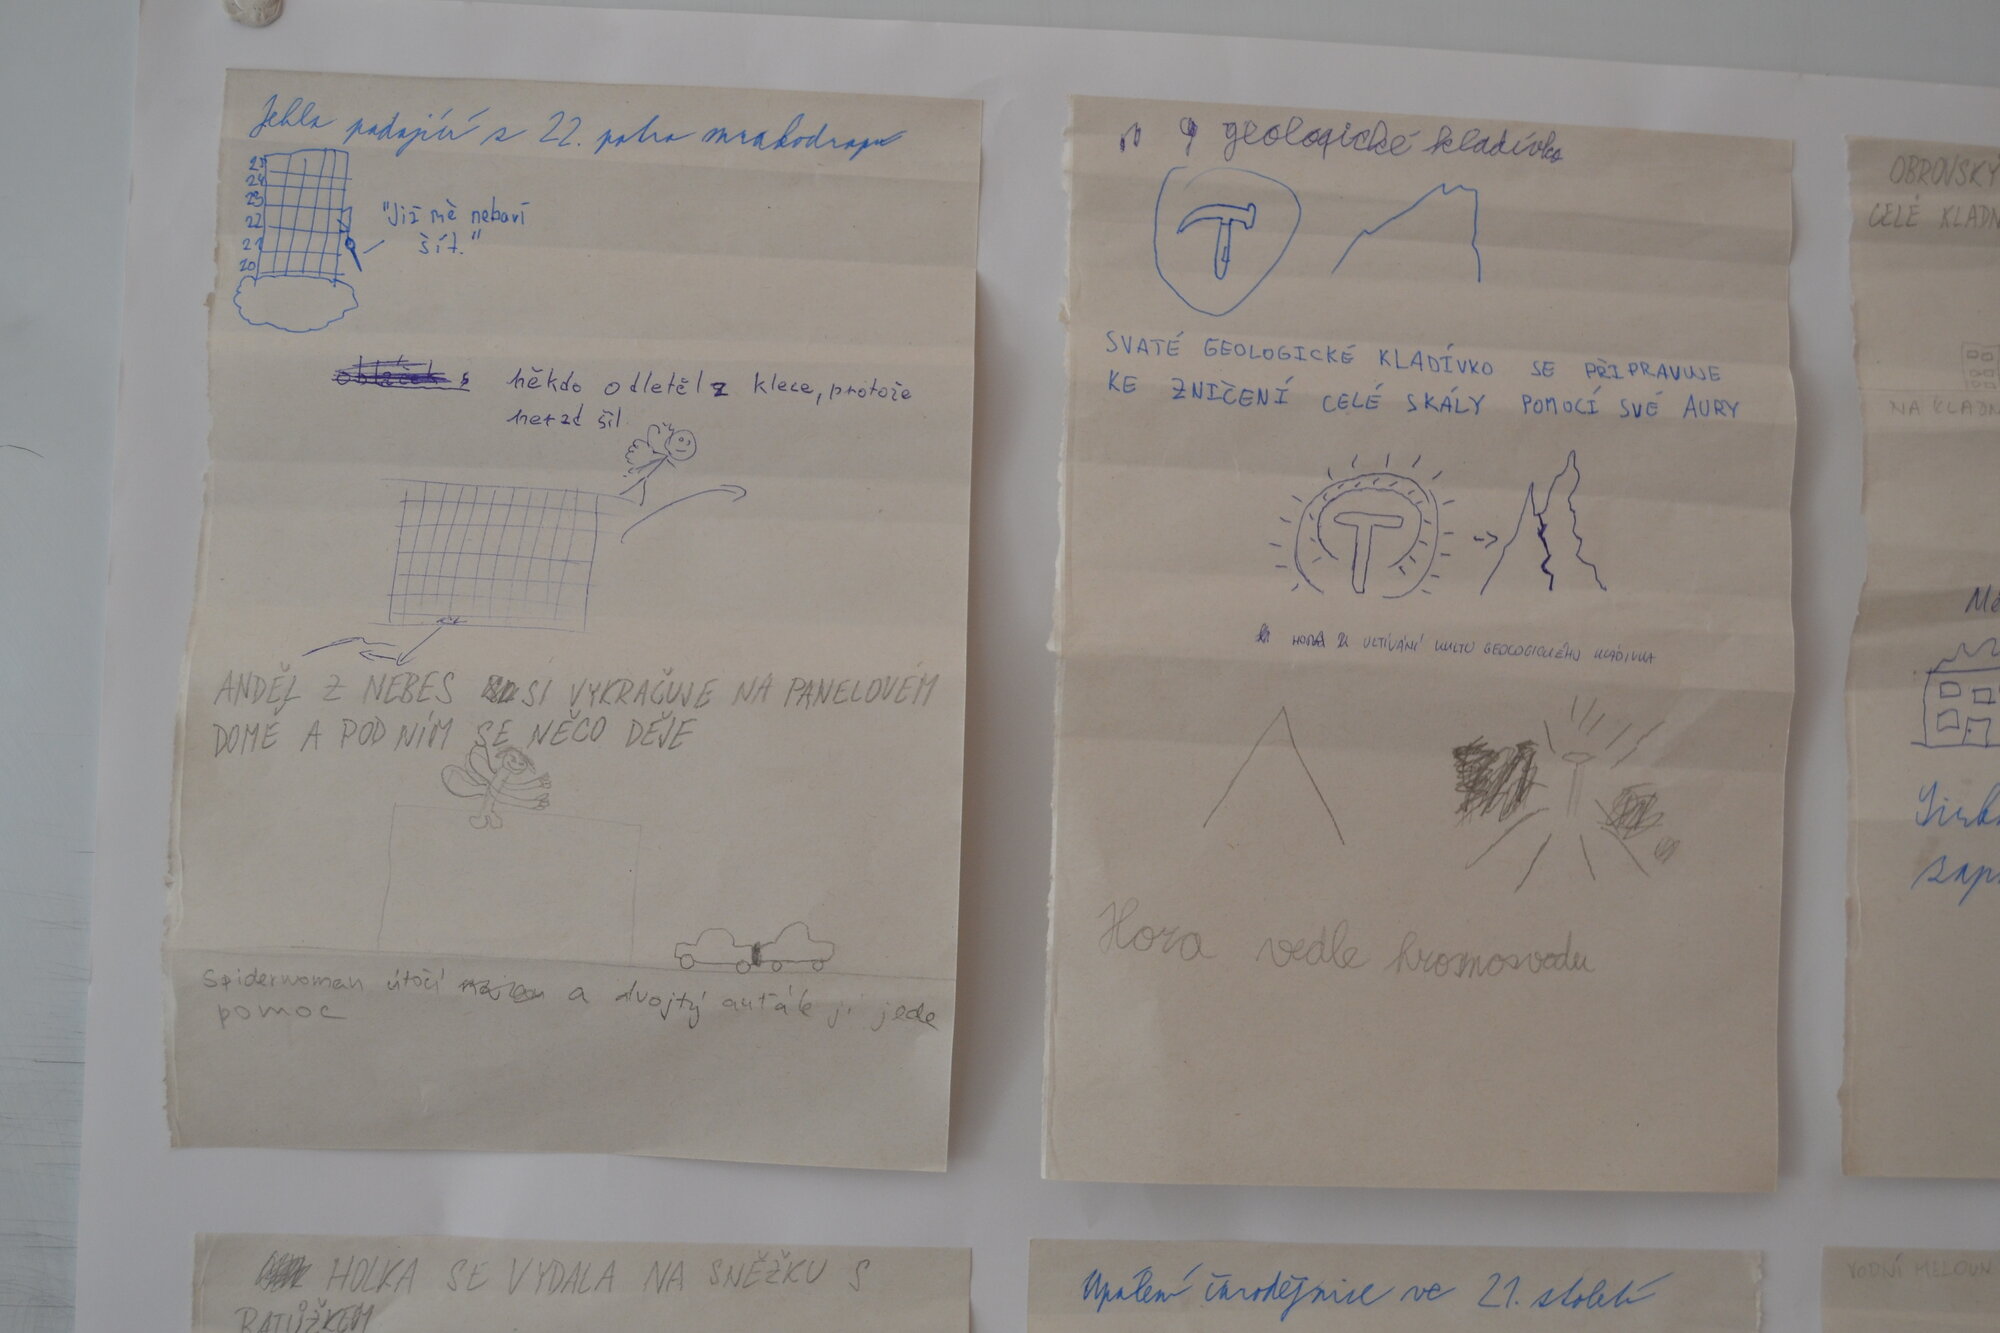 Jehla padající z 22. patra mrakodrapu
25
24
23
22
21
20
"Již mě nebaví
šít."
někdo odletěl z klece, protože
nerad šil
ANDĚL Z NEBES SI VYKRAČUJE NA PANELOVÉM
DOMĚ A POD NÍM SE NĚCO DĚJE
Spiderwoman útočí a dvojtý auťák jí jede
pomoc
geologické kladívko
SVATÉ GEOLOGICKÉ KLADÍVKO SE PŘIPRAVUJE
KE ZNIČENÍ CELÉ SKÁLY POMOCÍ SVÉ AURY
HORA K UCTÍVÁNÍ KULTU GEOLOGICKÉHO KLADÍVKA
Hora vedle hromosvodu
OBROVSKÝ
CELÉ KLADN
NA KLADN
HOLKA SE VYDALA NA SNĚŽKU S
BATŮŽKEM
Upálení čarodějnice ve 21. století
VODNÍ MELOUN